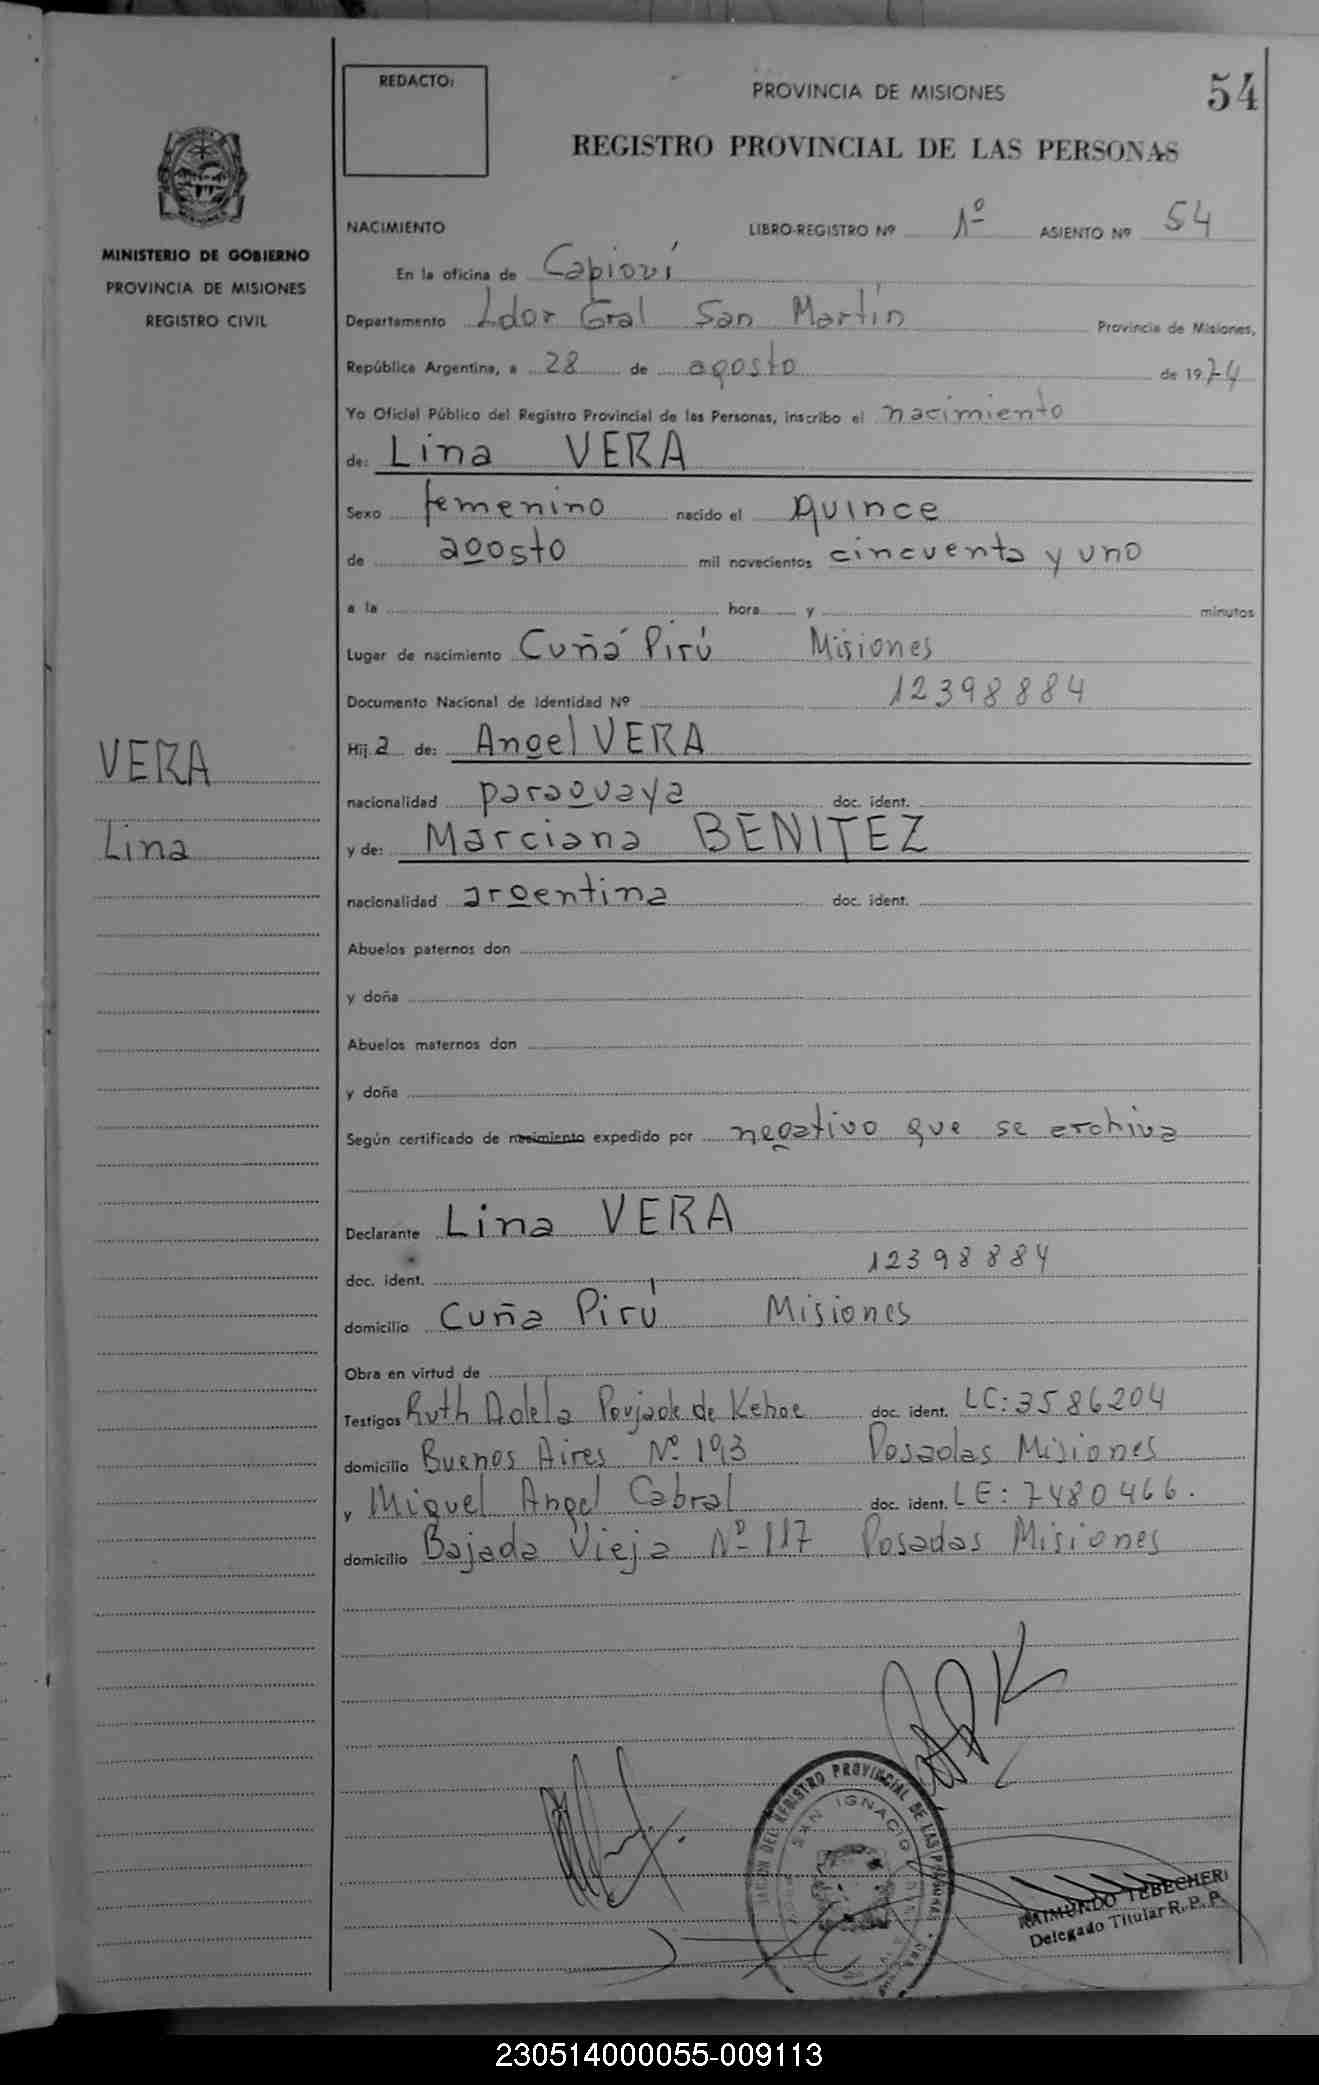 REDACTO:
PROVINCIA DE MISIONES
54
REGISTRO PROVINCIAL DE LAS PERSONAS
MINISTERIO DE GOBIERNO
PROVINCIA DE MISIONES
REGISTRO CIVIL
NACIMIENTO LIBRO-REGISTRO Nº 1º ASIENTO Nº 54
En la oficina de Capioví
Departamento Ldor Gral San Martín Provincia de Misiones,
República Argentina, a 28 de agosto de 1974
Yo Oficial Público del Registro Provincial de las Personas, inscribo el nacimiento
de: Lina VERA
Sexo femenino nacido el quince
de agosto mil novecientos cincuenta y uno
a la hora y minutos
Lugar de nacimiento Cuñá Pirú Misiones
Documento Nacional de Identidad Nº 12398884
Hija de: Angel VERA
VERA
nacionalidad paraguaya doc. ident.
Lina
y de: Marciana BENITEZ
nacionalidad argentina doc. ident.
Abuelos paternos don
y doña
Abuelos maternos don
y doña
Según certificado de nacimiento expedido por negativo que se archiva
Declarante Lina VERA
doc. ident. 12398884
domicilio Cuña Pirú Misiones
Obra en virtud de
Testigos Ruth Adela Poujade de Kehoe doc. ident. LC: 3586204
domicilio Buenos Aires Nº 193 Posadas Misiones
y Miguel Angel Cabral doc. ident. LE: 7480466.
domicilio Bajada Vieja Nº 117 Posadas Misiones
DEL REGISTRO PROVINCIAL DE LAS PERSONAS
SAN IGNACIO
RAIMUNDO TEBECHERI
Delegado Titular R. P. P.
230514000055-009113